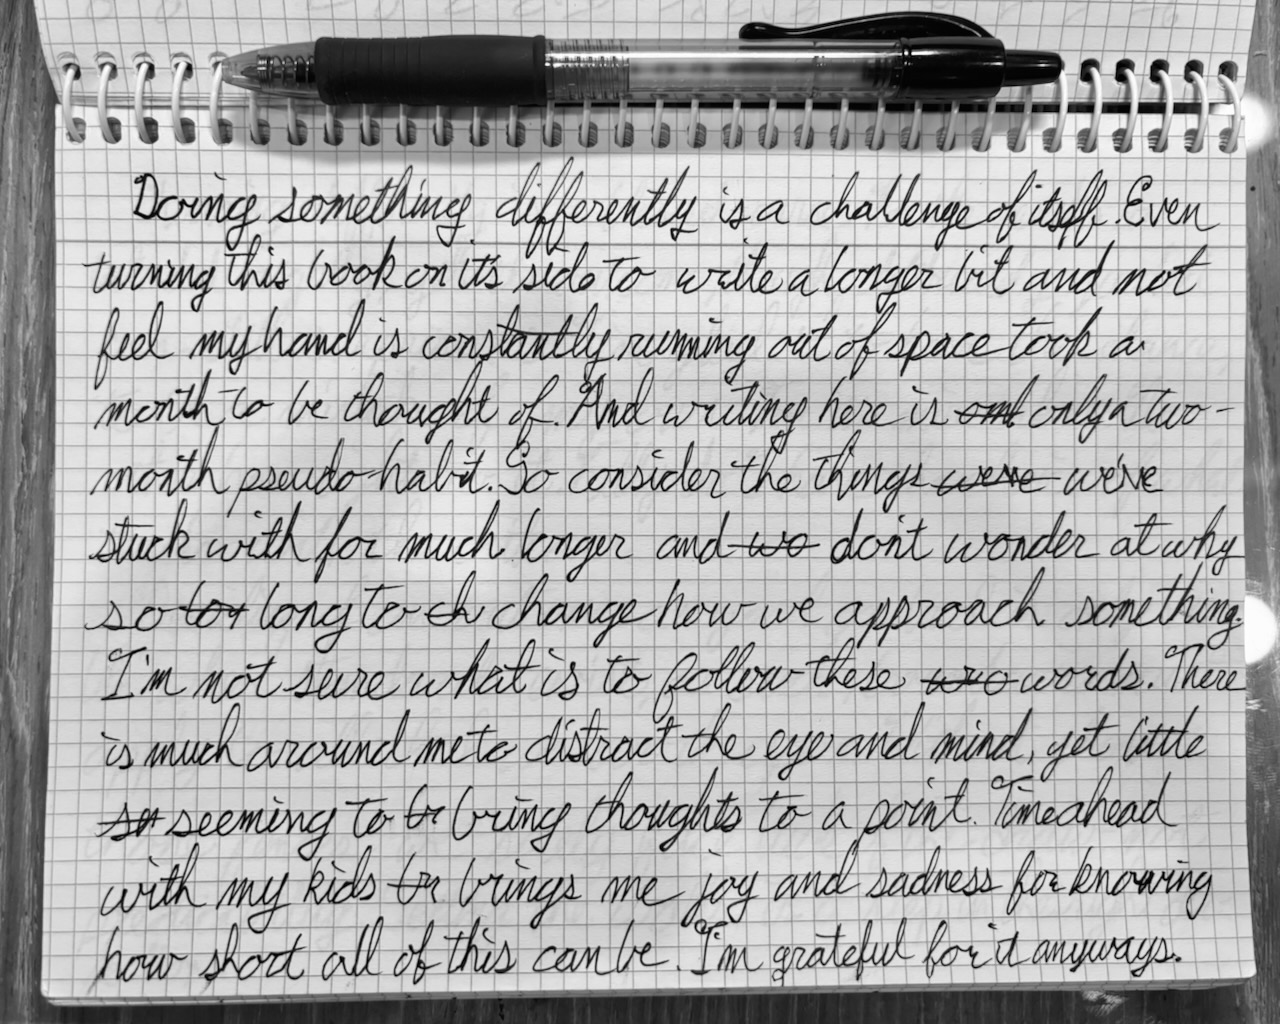 Doing something differently is a challenge of itself. Even
turning this book on it's side to write a longer bit and not
feel my hand is constantly running out of space took a
month to be thought of. And writing here is only a two-
month pseudo-habit. So consider the things were we've
stuck with for much longer and wo don't wonder at why
so long to ch change how we approach something.
I'm not sure what is to follow these wro words. There
is much around me to distract the eye and mind, yet little
seeming to br bring thoughts to a point. Time ahead
with my kids br brings me joy and sadness for knowing
how short all of this can be. I'm grateful for it anyways.